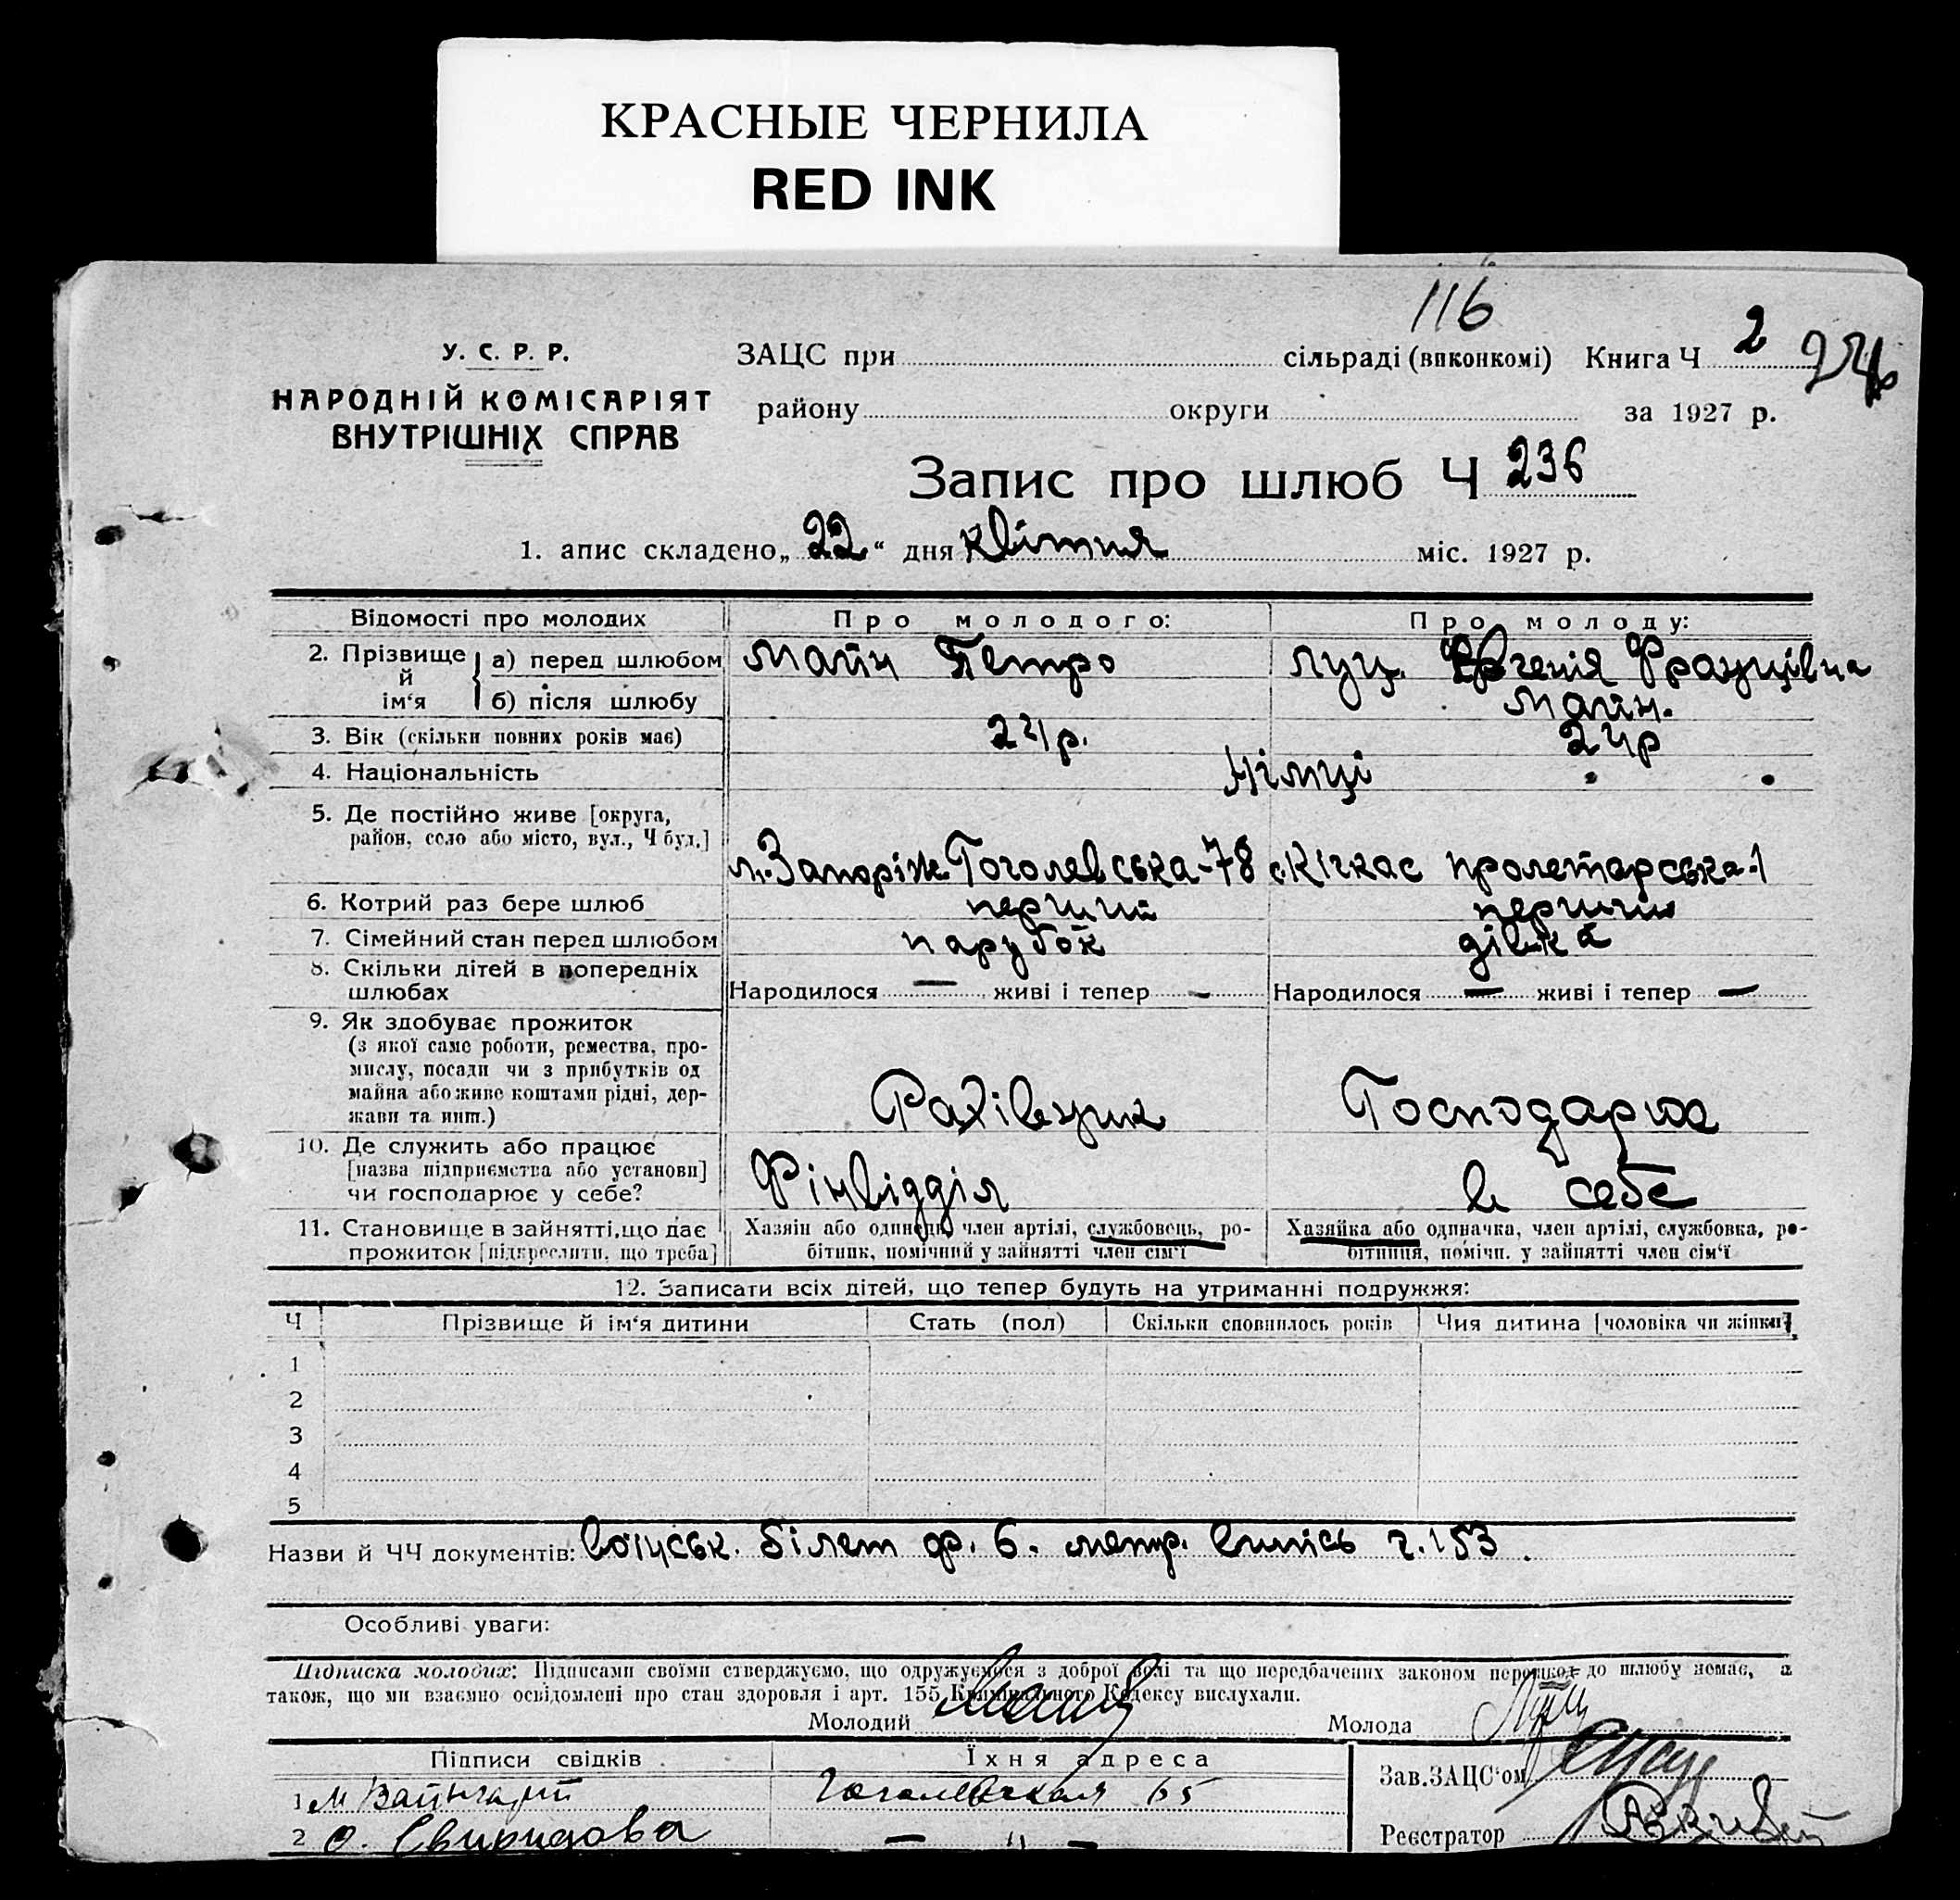 КРАСНЫЕ ЧЕРНИЛА
RED INK
116
У. С. Р. Р.
НАРОДНІЙ КОМІСАРІЯТ
ВНУТРІШНІХ СПРАВ
ЗАЦС при сільраді (виконкомі) Книга Ч 2
району округи за 1927 р.
Запис про шлюб Ч 236
1. апис складено „22“ дня квітня міс. 1927 р.
Відомості про молодих Про молодого: Про молоду:
2. Прізвище й ім‘я а) перед шлюбом Майн Петро Луц Євгенія Францівна
б) після шлюбу Майн.
3. Вік (скільки повних років має) 24р. 24р
4. Національність Німці
5. Де постійно живе [округа,
район, село або місто, вул., Ч буд.] м. Запоріж Гоголевська-78 с. Кічкас пролетарська-1
6. Котрий раз бере шлюб перший перший
7. Сімейний стан перед шлюбом парубок дівка
8. Скільки дітей в попередніх
шлюбах Народилося — живі і тепер — Народилося — живі і тепер —
9. Як здобуває прожиток
(з якої саме роботи, ремества, про-
мислу, посади чи з прибутків од
майна або живе коштами рідні, дер-
жави та инш.) Рахівник Господарюв
10. Де служить або працює
[назва підприємства або установи]
чи господарює у себе? Фінвідділ в себе
11. Становище в зайнятті, що дає
прожиток [підкреслити, що треба]
Хазяін або одинець, член артілі, службовець, ро-
бітник, помічний у зайнятті член сім‘ї
Хазяйка або одиначка, член артілі, службовка, ро-
бітниця, помічн. у зайнятті член сім‘ї
12. Записати всіх дітей, що тепер будуть на утриманні подружжя:
Ч Прізвище й ім‘я дитини Стать (пол) Скільки сповнилось років Чия дитина [чоловіка чи жінки]
1
2
3
4
5
Назви й ЧЧ документів: Воїнськ. білет ф. 6. метр. випісь ч. 153.
Особливі уваги:
Підписка молодих: Підписами своїми стверджуємо, що одружуємося з доброї волі та що передбачених законом перешкод до шлюбу немає, а
також, що ми взаємно освідомлені про стан здоровля і арт. 155 Кримінального Кодексу вислухали.
Молодий Молода Луц
Підписи свідків Їхня адреса
Зав. ЗАЦС‘ом
1 М Вайнгарт Гоголевская 65
2 О. Свиридова — „ —
Реєстратор